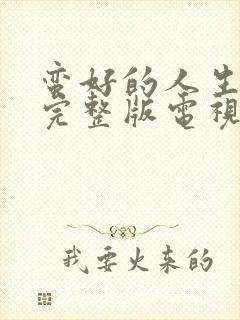 蛮好的人生
完整版電視
我要火来的